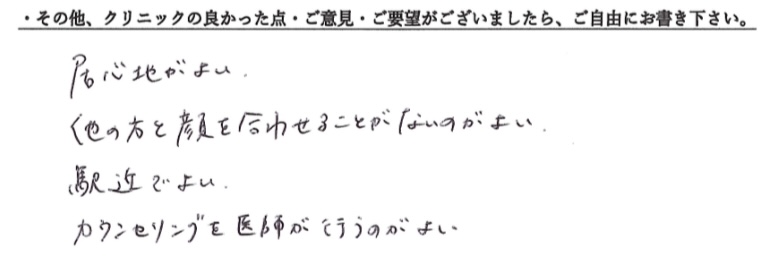 ・その他、クリニックの良かった点・ご意見・ご要望がございましたら、ご自由にお書き下さい。
居心地がよい.
他の方と顔を合わせることがないのがよい.
駅近でよい.
カウンセリングを医師が行うのがよい